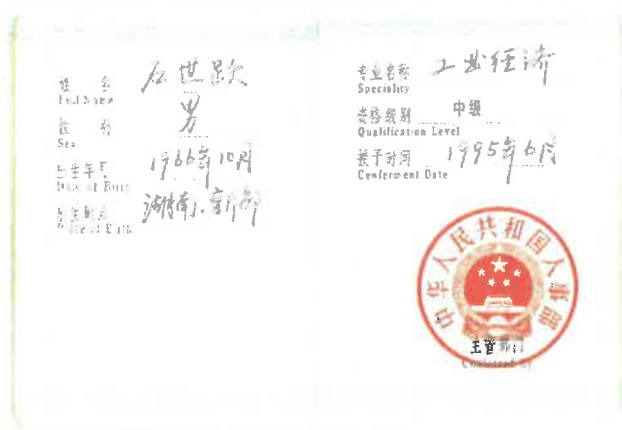 姓 名 石世
Full Name
性 别 男
Sex
出生年月 1966年10月
Date of Birth
出生地点 湖南
Place of Birth
专业名称 工业经济
Speciality
资格级别 中级
Qualification Level
授予时间 1995年6月
Conferment Date
中华人民共和国人事部
主管部门